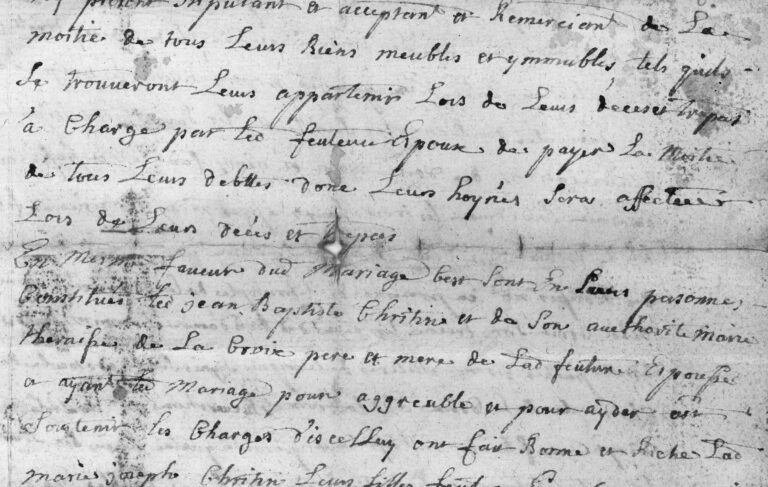 present stipulant et acceptant et Remerciant de La
moitie de tous Leurs Biens meubles et ymmeubles tels quils
Se trouveront Leurs appartenir Lors de Leurs deces et trepas
à Charge par led feuteur Epoux de payer La moitie
de tous Leurs debttes donc Leurs hoynes Sera affecteé
Lors de Leurs deces et trepas
En Mesme faveur dud Mariage Sont En Leurs personnes
Constitués led jean Baptiste Chritin et de Son aucthorité marie
theraisse de La Croix pere et mere de Lad feuture Epousse
a ayant led Mariage pour aggreable et pour ayder et
Soutenir les Charges d'iscelluy ont fait Bonne et Riche Lad
marie josephe Chritin Leurs fille